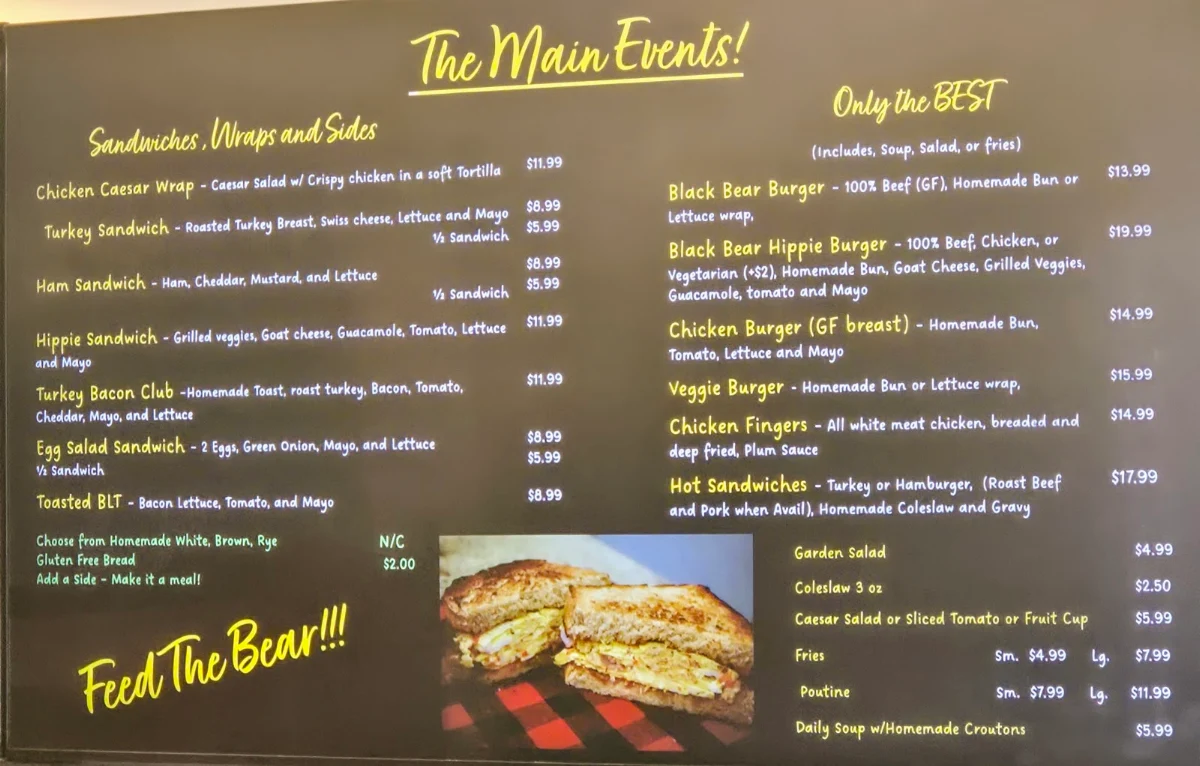 The Main Events!
Sandwiches, Wraps and Sides
Chicken Caesar Wrap - Caesar Salad w/ Crispy chicken in a soft Tortilla $11.99
Turkey Sandwich - Roasted Turkey Breast, Swiss cheese, Lettuce and Mayo $8.99
½ Sandwich $5.99
Ham Sandwich - Ham, Cheddar, Mustard, and Lettuce $8.99
½ Sandwich $5.99
Hippie Sandwich - Grilled veggies, Goat cheese, Guacamole, Tomato, Lettuce $11.99
and Mayo
Turkey Bacon Club -Homemade Toast, roast turkey, Bacon, Tomato, $11.99
Cheddar, Mayo, and Lettuce
Egg Salad Sandwich - 2 Eggs, Green Onion, Mayo, and Lettuce $8.99
½ Sandwich $5.99
Toasted BLT - Bacon Lettuce, Tomato, and Mayo $8.99
Choose from Homemade White, Brown, Rye N/C
Gluten Free Bread $2.00
Add a Side - Make it a meal!
Feed The Bear!!!
Only the BEST
(Includes, Soup, Salad, or fries)
Black Bear Burger - 100% Beef (GF), Homemade Bun or $13.99
Lettuce wrap,
Black Bear Hippie Burger - 100% Beef, Chicken, or $19.99
Vegetarian (+$2), Homemade Bun, Goat Cheese, Grilled Veggies,
Guacamole, tomato and Mayo
Chicken Burger (GF breast) - Homemade Bun, $14.99
Tomato, Lettuce and Mayo
Veggie Burger - Homemade Bun or Lettuce wrap, $15.99
Chicken Fingers - All white meat chicken, breaded and $14.99
deep fried, Plum Sauce
Hot Sandwiches - Turkey or Hamburger, (Roast Beef $17.99
and Pork when Avail), Homemade Coleslaw and Gravy
Garden Salad $4.99
Coleslaw 3 oz $2.50
Caesar Salad or Sliced Tomato or Fruit Cup $5.99
Fries Sm. $4.99 Lg. $7.99
Poutine Sm. $7.99 Lg. $11.99
Daily Soup w/Homemade Croutons $5.99